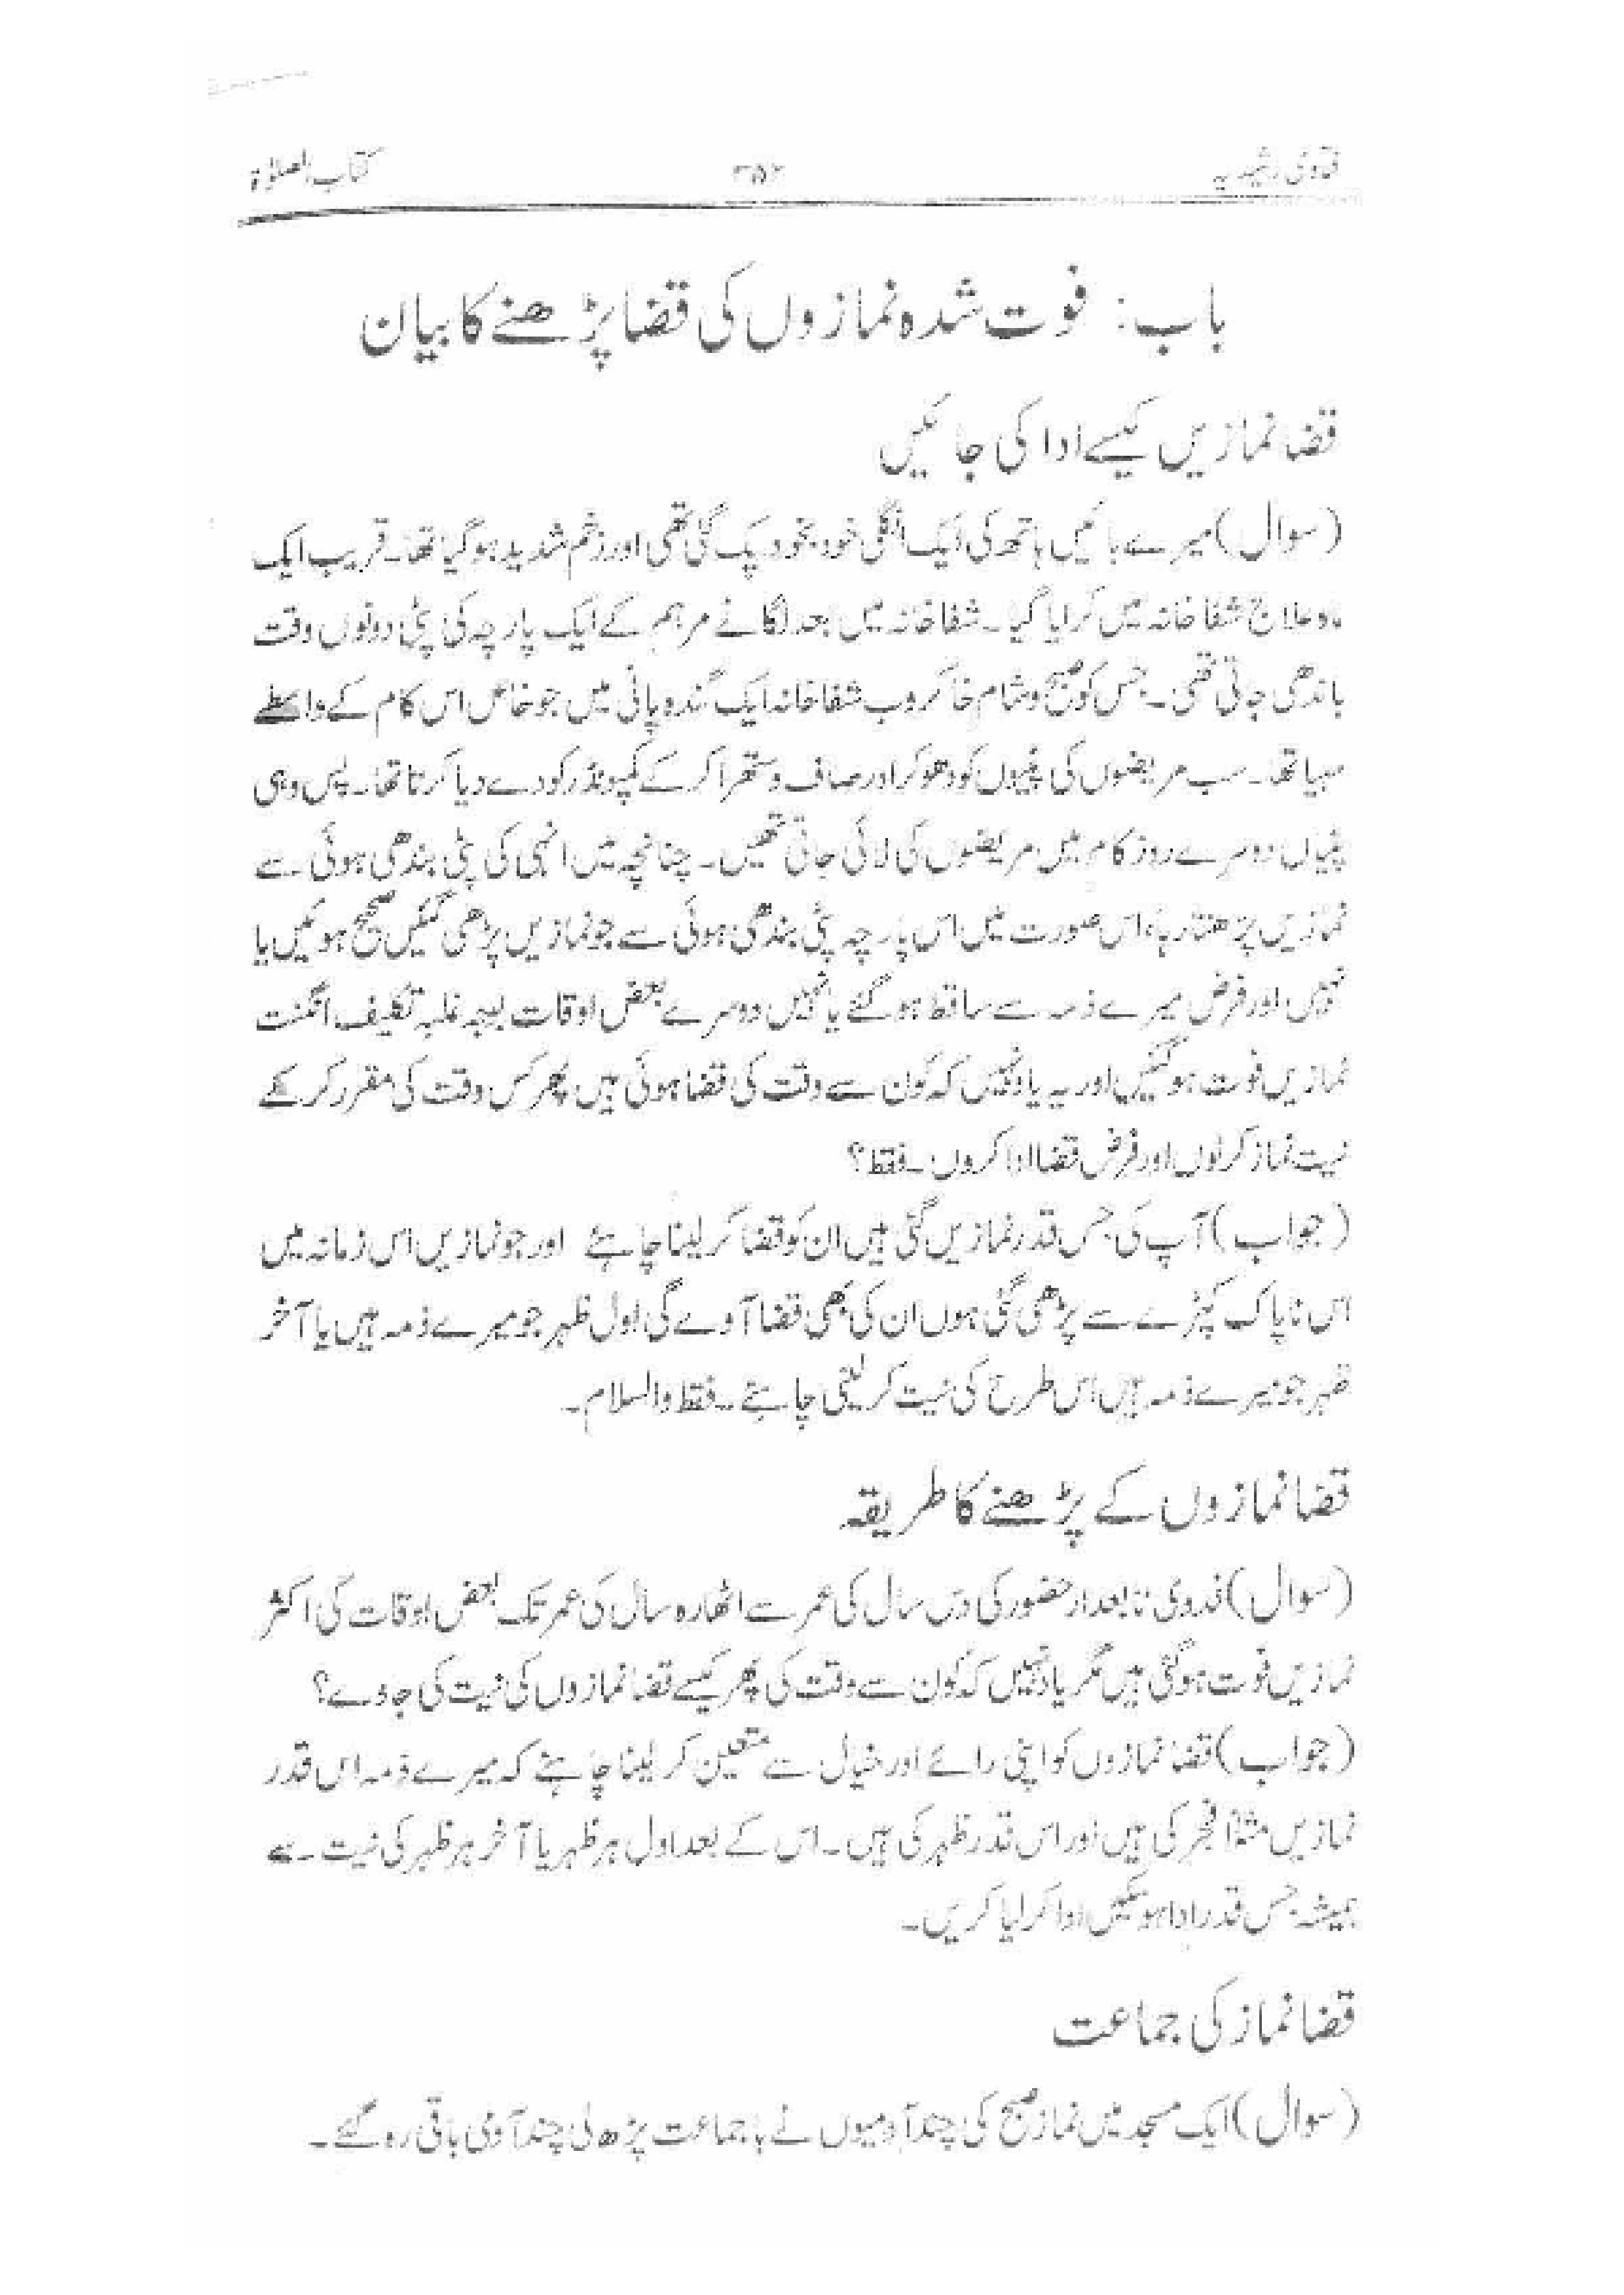 فتاویٰ رشیدیہ ۳۵۲ کتاب الصلوٰۃ
باب: فوت شدہ نمازوں کی قضا پڑھنے کا بیان
قضا نمازیں کیسے ادا کی جائیں
(سوال) میرے بائیں ہاتھ کی ایک انگلی خود بخود پک گئی تھی اور زخم شدید ہو گیا تھا۔ قریب ایک
ماہ علاج شفا خانہ میں کرایا گیا۔ شفا خانہ میں بعد لگانے مرہم کے ایک پارچہ کی پٹی دونوں وقت
باندھی جاتی تھی۔ جس کو صبح و شام خاکروب شفا خانہ ایک گندہ پانی میں جو خاص اس کام کے واسطے
مہیا تھا۔ سب مریضوں کی پٹیوں کو دھو کر اور صاف و ستھرا کر کے کمپونڈر کو دے دیا کرتا تھا۔ پس وہی
پٹیاں دوسرے روز کام میں مریضوں کی لائی جاتی تھیں۔ چنانچہ میں انہی کی پٹی بندھی ہوئی سے
نمازیں پڑھتا رہا، اس صورت میں اس پارچہ پٹی بندھی ہوئی سے جو نمازیں پڑھی گئیں صحیح ہوئیں یا
نہیں اور فرض میرے ذمہ سے ساقط ہو گئے یا نہیں دوسرے بعض اوقات بوجہ غلبہ تکلیف انگشت
نمازیں فوت ہو گئیں اور یہ یاد نہیں کہ کون سے وقت کی قضا ہوئی ہیں پھر کس وقت کی مقرر کر کے
نیت نماز کر لوں اور فرض قضا ادا کروں۔ فقط؟
(جواب) آپ کی جس قدر نمازیں گئی ہیں ان کو قضا کر لینا چاہئے اور جو نمازیں اس زمانہ میں
اس ناپاک کپڑے سے پڑھی گئی ہوں ان کی بھی قضا آوے گی اول ظہر جو میرے ذمہ ہیں یا آخر
ظہر جو میرے ذمہ ہیں اس طرح کی نیت کر لینی چاہئے۔ فقط والسلام۔
قضا نمازوں کے پڑھنے کا طریقہ
(سوال) فدوی تابعدار حضور کی دس سال کی عمر سے اٹھارہ سال کی عمر تک بعض اوقات کی اکثر
نمازیں فوت ہو گئی ہیں مگر یاد نہیں کہ کون سے وقت کی پھر کیسے قضا نمازوں کی نیت کی جاوے؟
(جواب) قضا نمازوں کو اپنی رائے اور خیال سے متعین کر لینا چاہئے کہ میرے ذمہ اس قدر
نمازیں مثلاً فجر کی ہیں اور اس قدر ظہر کی ہیں۔ اس کے بعد اول ہر ظہر یا آخر ہر ظہر کی نیت سے
ہمیشہ جس قدر ادا ہو سکیں ادا کر لیا کریں۔
قضا نماز کی جماعت
(سوال) ایک مسجد میں نماز صبح کی چند آدمیوں نے با جماعت پڑھ لی چند آدمی باقی رہ گئے۔